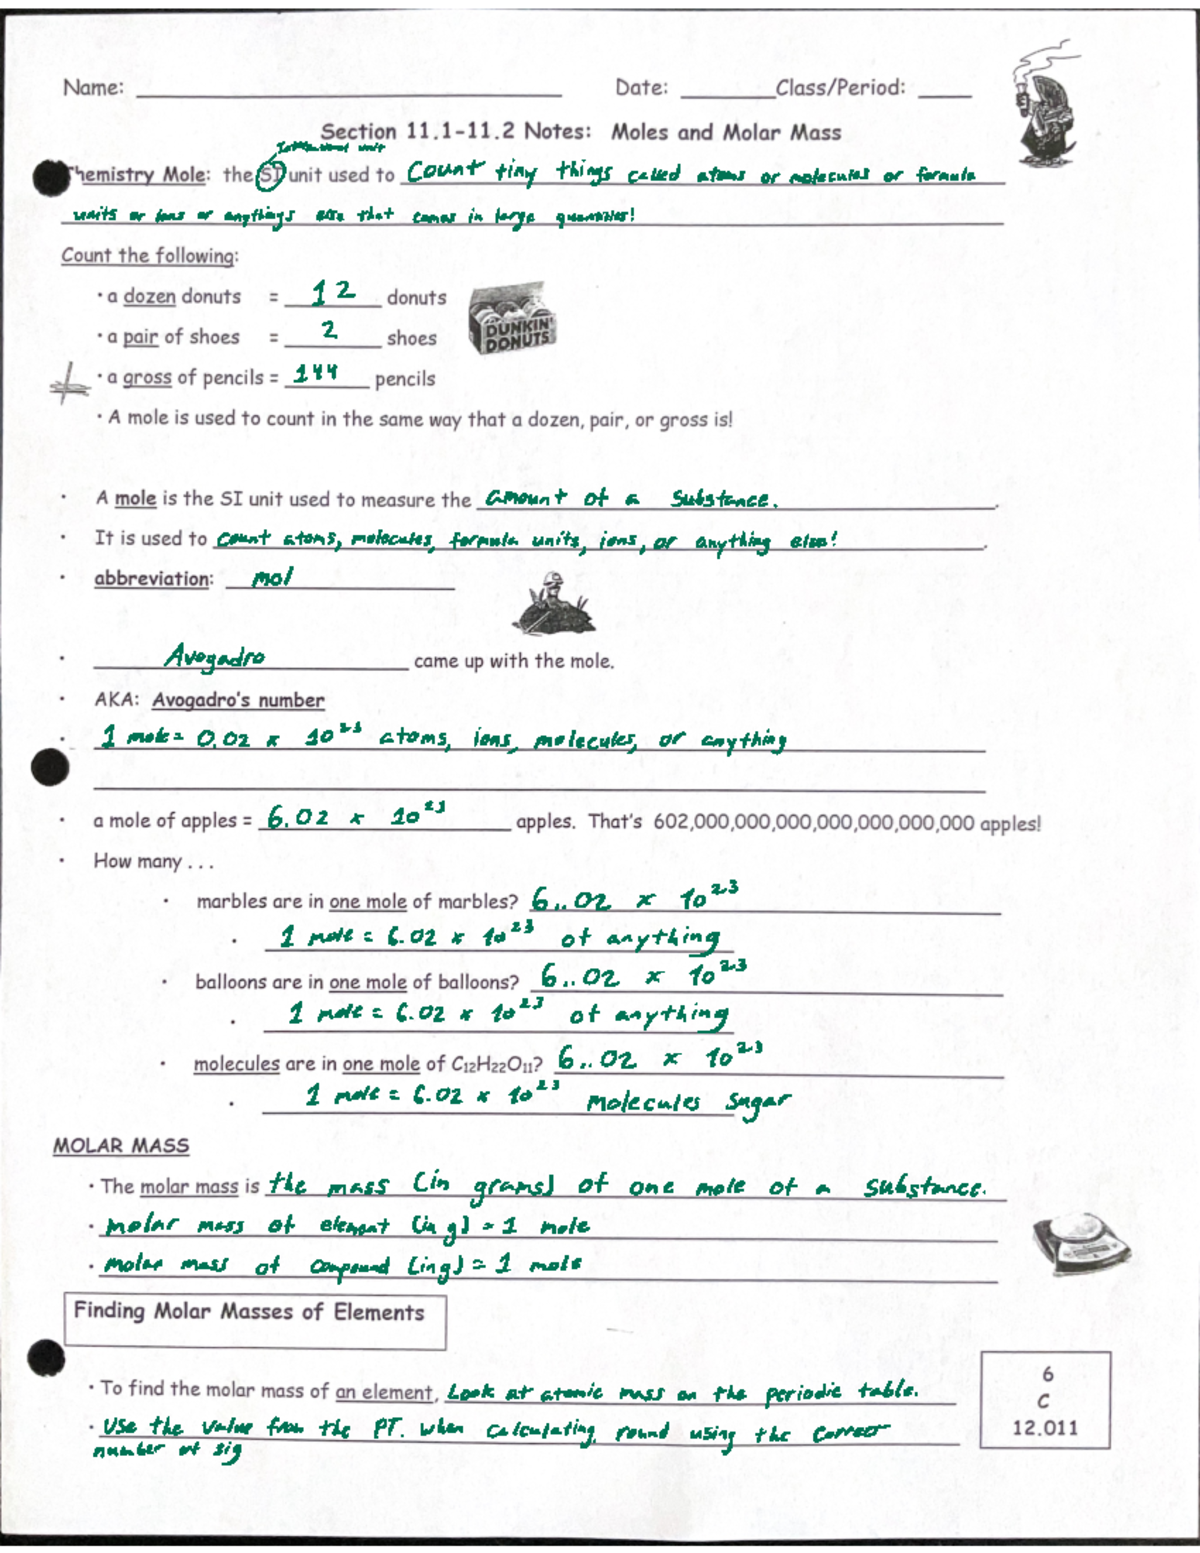 Name: ____ Date: ____ Class/Period: ____
Section 11.1-11.2 Notes: Moles and Molar Mass
International unit
Chemistry Mole: the SI unit used to Count tiny things called atoms or molecules or formula
units or ions or anythings else that comes in large quantities!
Count the following:
• a dozen donuts = 12 donuts
DUNKIN' DONUTS
• a pair of shoes = 2 shoes
• a gross of pencils = 144 pencils
• A mole is used to count in the same way that a dozen, pair, or gross is!
• A mole is the SI unit used to measure the amount of a Substance.
• It is used to count atoms, molecules, formula units, ions, or anything else!
• abbreviation: mol
• Avogadro came up with the mole.
• AKA: Avogadro's number
• 1 mole = 0.02 x 10²³ atoms, ions, molecules, or anything
• a mole of apples = 6.02 x 10²³ apples. That's 602,000,000,000,000,000,000,000 apples!
• How many . . .
• marbles are in one mole of marbles? 6..02 x 10²³
• 1 mole = 6.02 x 10²³ of anything
• balloons are in one mole of balloons? 6..02 x 10²³
• 1 mole = 6.02 x 10²³ of anything
• molecules are in one mole of C₁₂H₂₂O₁₁? 6..02 x 10²³
• 1 mole = 6.02 x 10²³ molecules sugar
MOLAR MASS
• The molar mass is the mass (in grams) of one mole of a substance.
• molar mass of element (in g) = 1 mole
• molar mass of compound (in g) = 1 mole
Finding Molar Masses of Elements
• To find the molar mass of an element, Look at atomic mass on the periodic table.
• Use the value from the PT. when calculating, round using the correct
number of sig
6
C
12.011